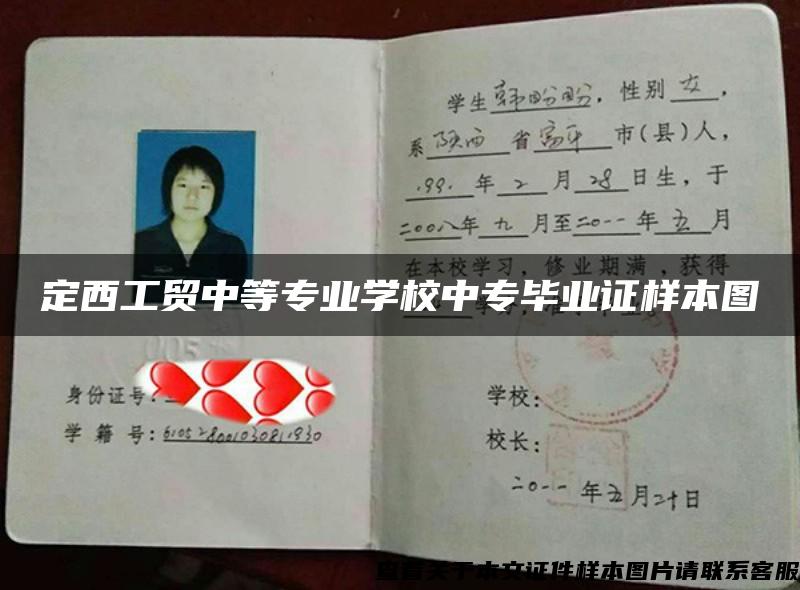 学生韩盼盼，性别女，
系陕西省富平市(县)人，
1991年2月28日生，于
二〇〇八年九月至二〇一一年五月
在本校学习，修业期满，获得
定西工贸中等专业学校中专毕业证样本图
005
身份证号：
学籍号：610528001030811930
学校：
校长：
二〇一一年五月二十日
查看关于本文证件样本图片请联系客服